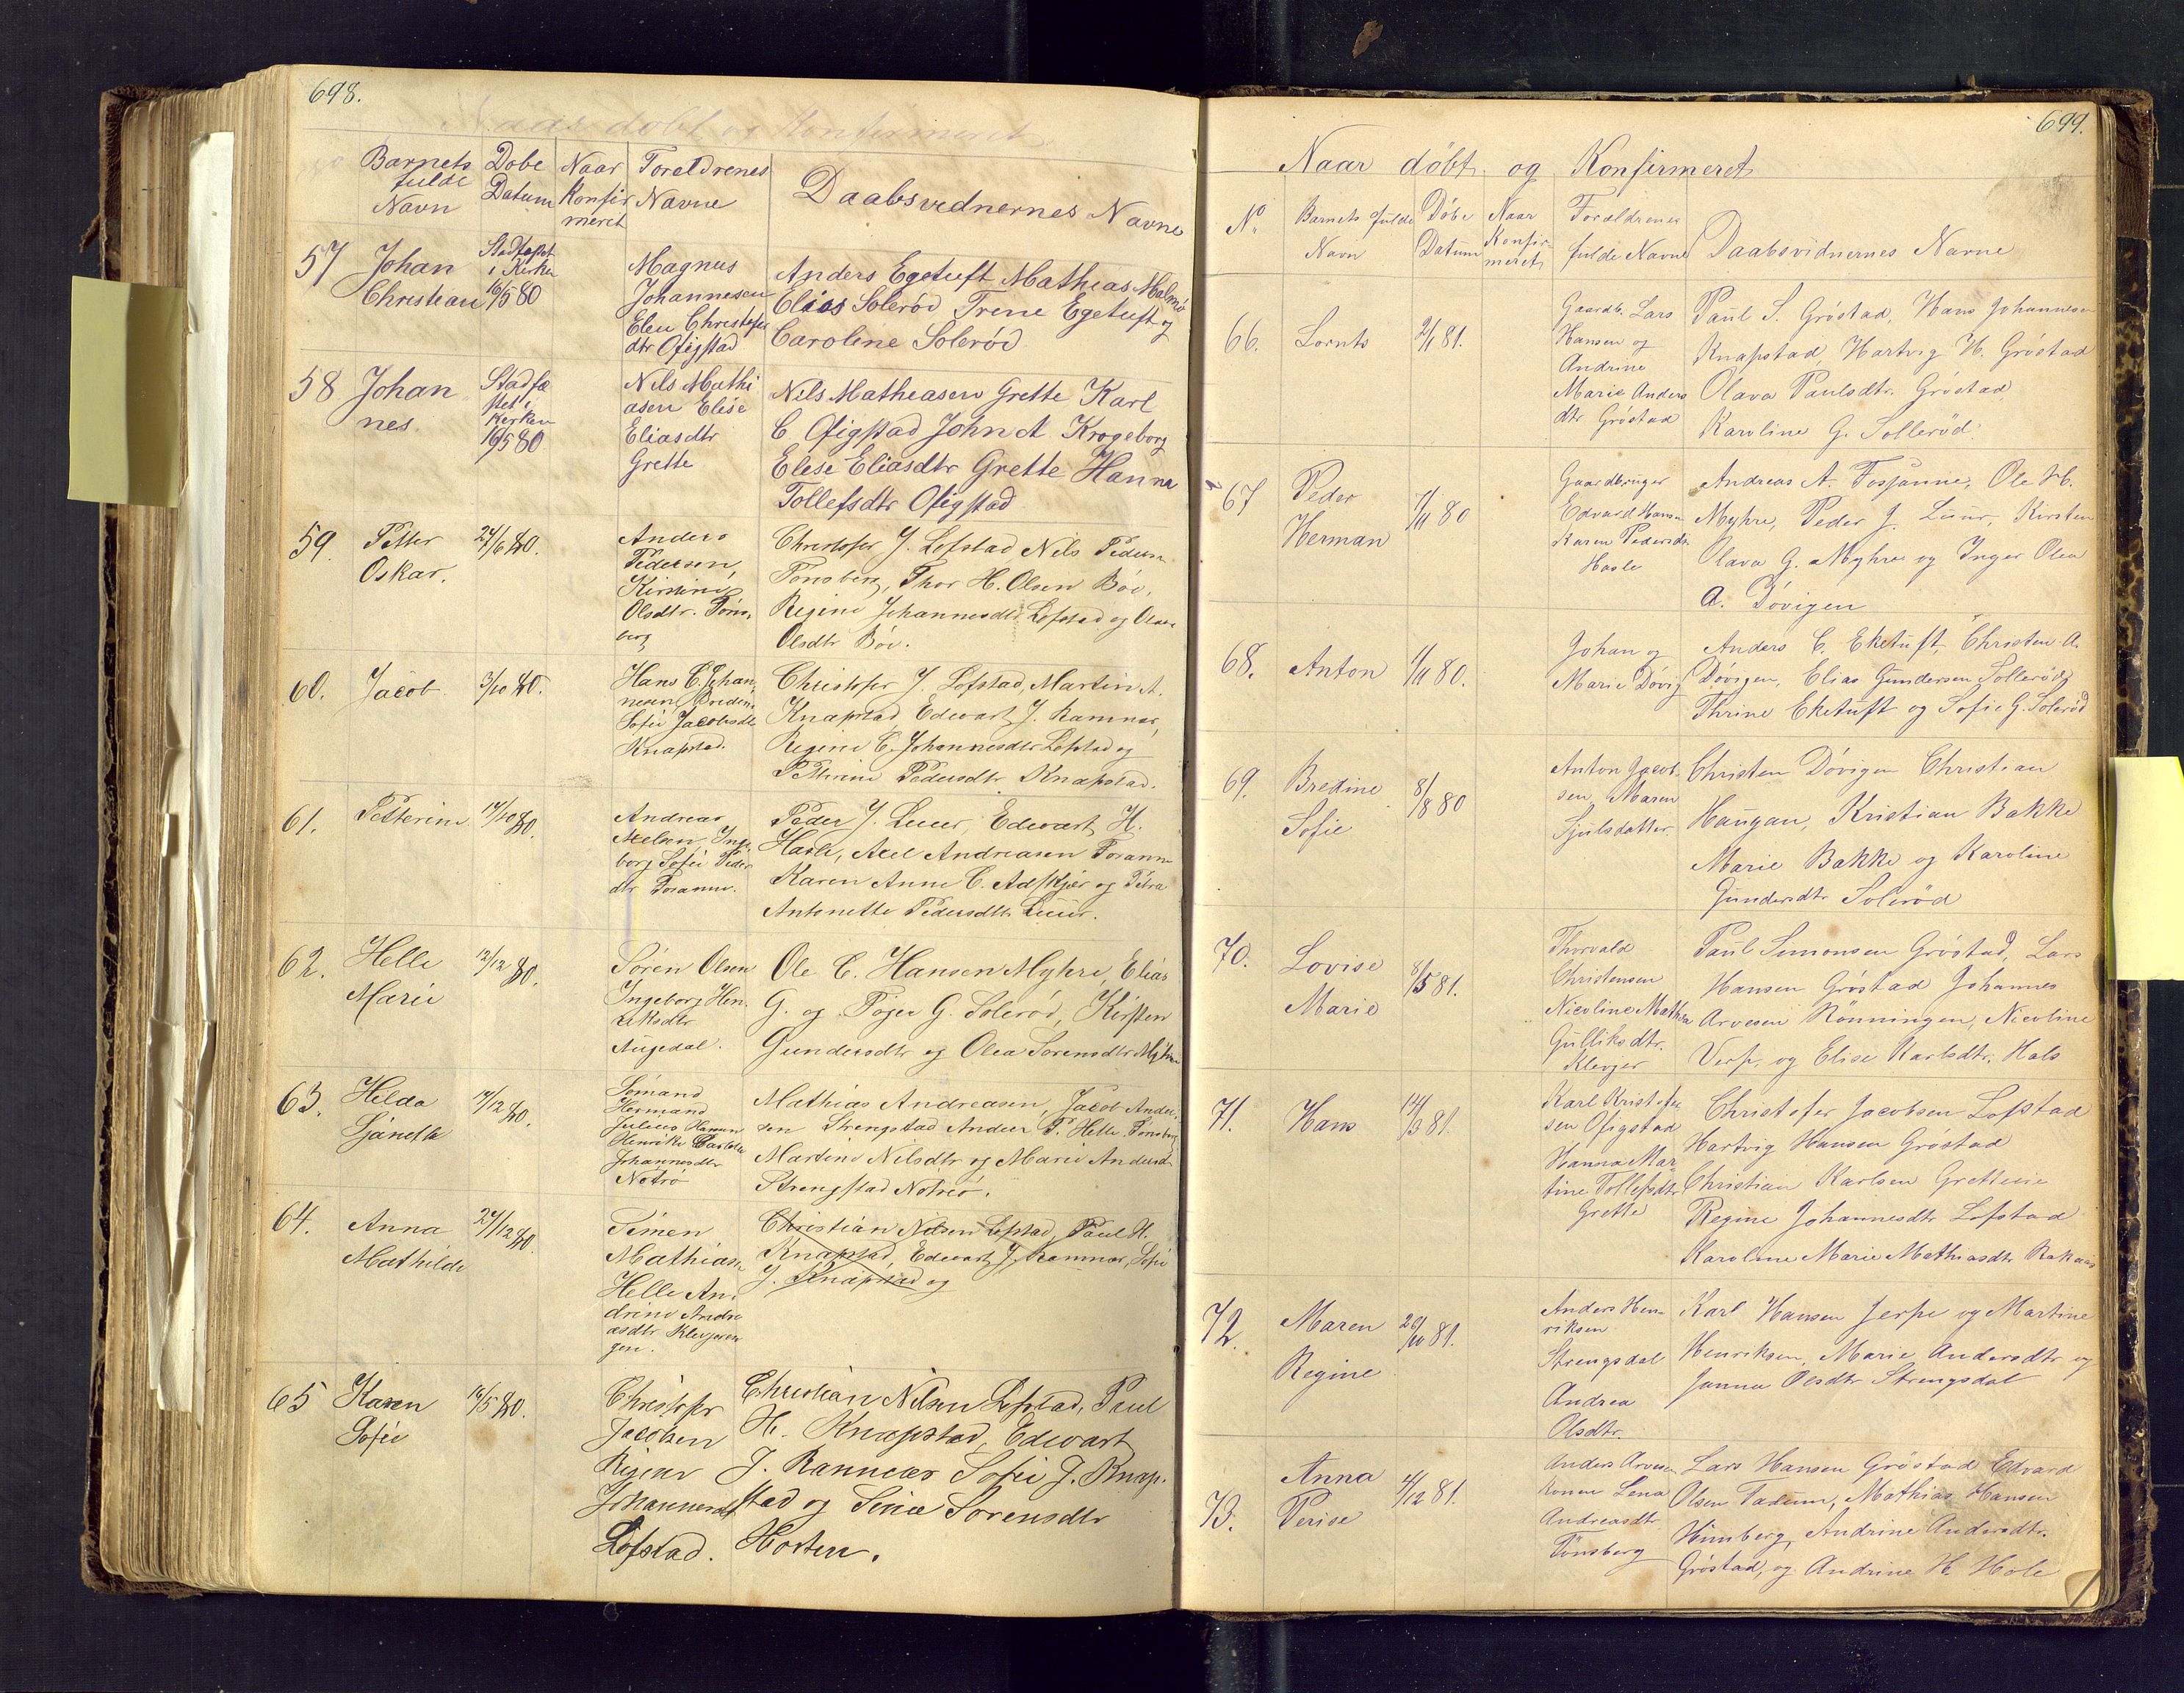 698.
Naar døbt og Konfirmeret
Barnets fulde Navn
Dobe Datum
Naar Konfir meret
Foreldrenes Navne
Daabsvednernes Navne
57 Johan Christian
Stadfæst i Kirken 16/5 80
Magnus
Johannesen
Elen Christofer
dtr Ofigstad
Anders Egetuft Matheas Malmö
Elias Solerød Trene Egetuft og
Caroline Solerød
58 Johan nes
Stadfæ stet i Kerken 16/5 80
Nels Mathi
asen Elise
Eliasdtr
Grette
Nils Matheasen Grette Karl
C Ofigstad John A Krogeborg
Elese Eliasdtr Grette Hanna
Tollefsdtr Ofigstad
59. Petter Oskar.
27/6 80.
Anders
Pedersen,
Kirstine
Olsdtr. Töns
berg
Christofer J. Lofstad Nels Pedersn
Tonsberg, Thor H. Olsen Böe,
Regine Johannesdtr Lofstad og
Olsdtr Böe.
60. Jacob
3/10 80.
Hans C. Johan
nesen
Sofie Jacobsdtr
Knapstad.
Christofer J. Lofstad, Martin A.
Knapstad, Edevart J. Ramnæs,
Regine C. Johannesdtr Lofstad og
Petterine Pedersdtr Knapstad.
61. Petterine
17/10 80.
Andreas
Axelsen, Inge
borg Sofie Peder
dtr
Peder J. Luur, Edevart H.
Hasle, Axel Andreasen
Karen Anne C. Adskjer og Petra
Antonette Pedersdtr Luur.
62. Helle Marie
12/12 80.
Søren Olsen
Ingeborg Hen
riksdtr
Augedal.
Ole C. Hansen Myhre, Elias
G. og G. Solerød, Kirsten
Gundersdtr og Olea Sorensdtr Myhre
63. Hilda Sjanette
17/12 80.
Sömand
Hermand
Julius Hansen
Henrikke
Johannesdtr
Notrö
Mathias Andreasen, Jacob Ander
sen Strengstad Anders P. Helle, Tonsberg
Martine Nilsdtr og Marie Andersd
Strengstad Notrö.
64. Anna Mathilde
27/12 80.
Simen
Mathiasen
Helle An
drine Andre
asdtr Klevjeren
gen.
Christian Nilsen Lofstad, Paul H.
Knapstad, Edevart J. Ramnæs, Sofie
J. Knapstad og
65 Karen Sofie
16/5 80.
Christofer
Jacobsen
Regine
Johannesdt
Lofstad.
Christian Nilsen Lofstad, Paul
H. Knapstad, Edevart
J. Ramnæs Sofie J. Knap
stad og Sorensdtr
Horten.
699.
Naar døbt og Konfirmeret
No.
Barnets fulde Navn
Døbe Datum
Naar Konfir meret
Forældrenes fulde Navne
Daabsvidnernes Navne
66. Lornts
2/1 81.
Gaardb. Lars
Hansen og
Andrine
Marie Anders
dtr Gröstad
Paul S. Gröstad, Hans Johannesen
Knapstad, Hartvig H. Gröstad
Olava Paulsdtr. Gröstad
Karoline G. Solleröd.
67 Peder Herman
7/11 80
Gaardbruger
Edvard Hansn
Karen Pedersdr.
Hasle
Andreas A. Ole H.
Myhre, Peder J. Luur, Kirsten
Olava G. Myhre og Inger Olea
A. Dövigen
68. Anton
1/11 80.
Johan og
Marie Dövig
Anders C. Eketuft, Christen A.
Dövigen, Elias Gundersen Solleröd
Thrine Eketuft og Sofie G. Soleröd
69. Bredine Sofie
8/8 80
Anton Jacob
sen, Maren
Sjulsdatter.
Christen Dövigen Christian
Haugan, Kristian Bakke
Marie Bakke og Karoline
Gundersdtr Soleröd
70. Lovise Marie
8/5 81.
Thorvald
Christensen
Nicoline Mathea
Gulliksdtr.
Klevjer
Paul Simonsen Gröstad, Lars
Hansen Gröstad Johannes
Arvesen Rönningen, Nicoline
Verp, og Elise Karlsdtr. Hals
71. Hans
14/3 81.
Karl Kristofer
sen Ofigstad
Hanna Mar
tine Tollefsdtr
Grette
Christofer Jacobsen Lofstad
Hartvig Hansen Gröstad
Christian Karlsen
Regine Johannesdtr Lofstad
Karoline Marie Mathiasdtr
72. Maren Regine
26/10 81.
Anders Hen
riksen
Strengsdal
Andrea
Olsdtr.
Karl Hansen Jerpe og Martine
Henriksen, Marie Andersdtr og
Janna Olsdtr Strengsdal
73. Anna Perise
4/12 81.
Anders Arvesen
Konen Lena
Andreasdtr
Tönsberg
Lars Hansen Gröstad Edvard
Olsen Tadum, Mathias Hansen
Himberg, Andrine Andersdtr.
Gröstad, og Andrine H. Hole